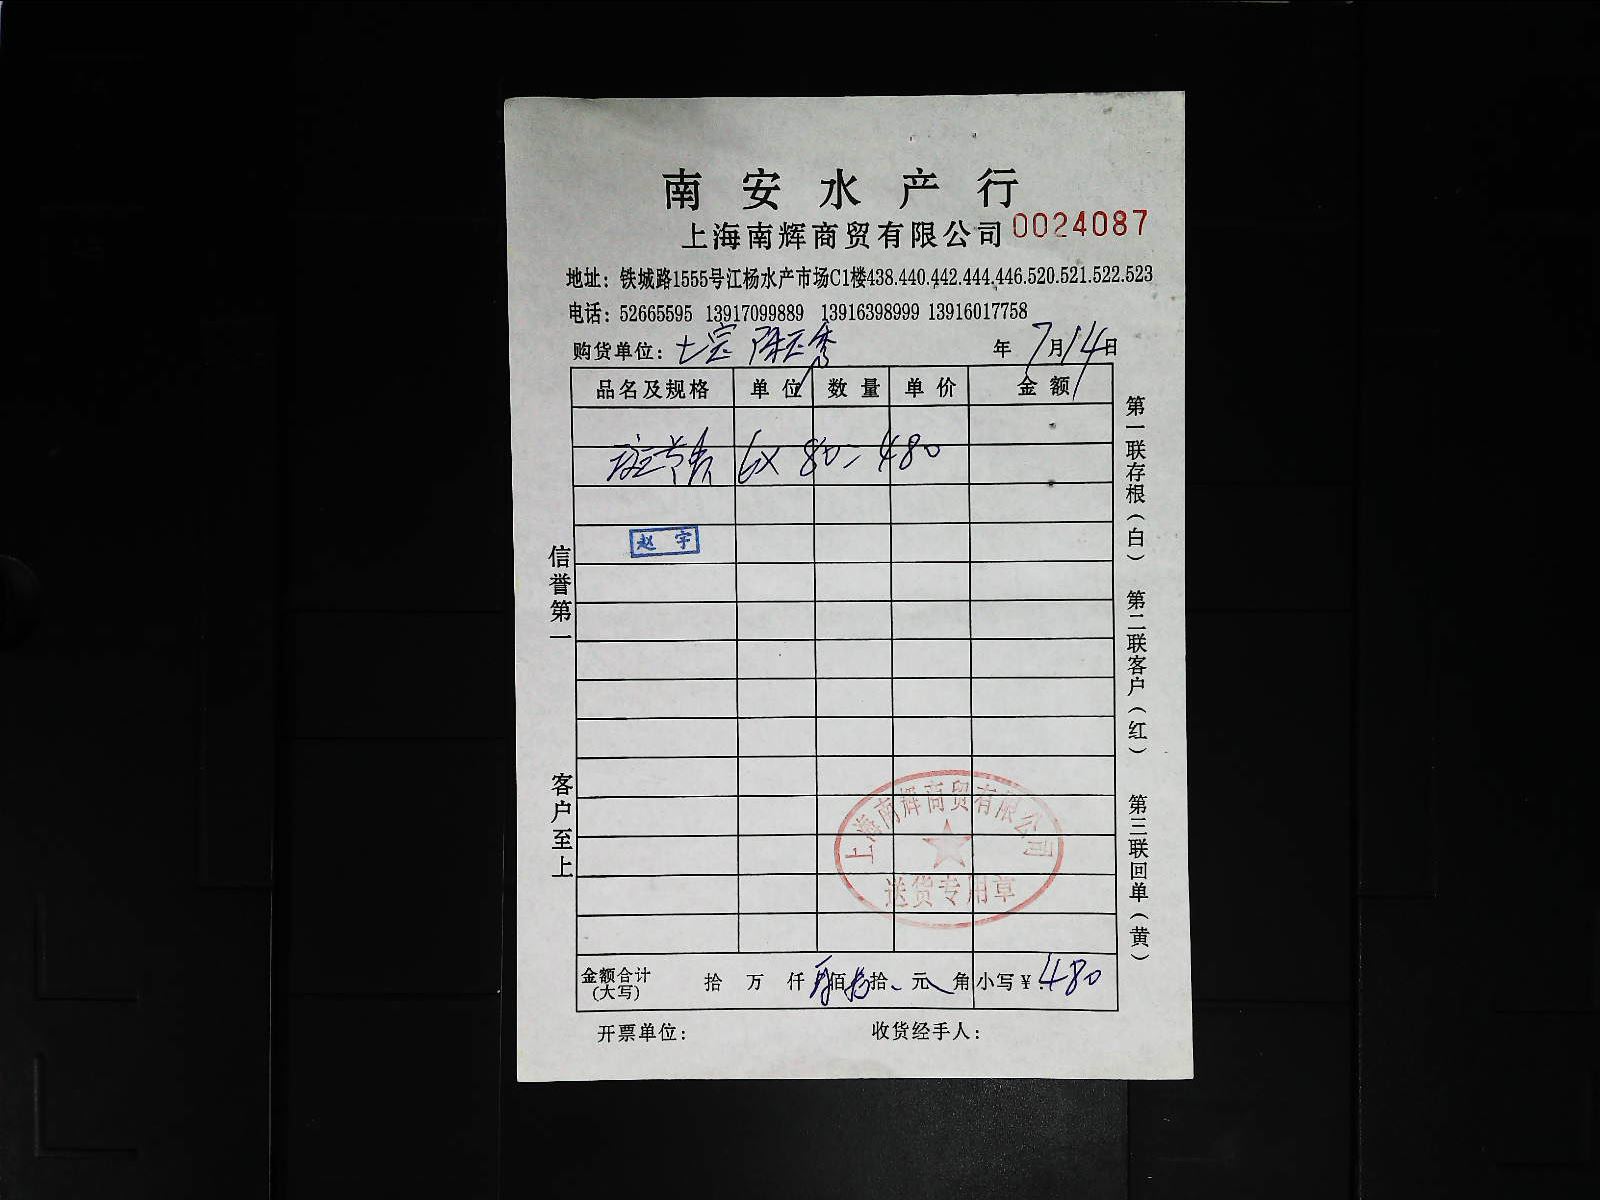 南安水产行
上海南辉商贸有限公司 0024087
地址：铁城路1555号江杨水产市场C1楼438.440.442.444.446.520.521.522.523
电话：52665595 13917099889 13916398999 13916017758
购货单位： 年 7月14日
品名及规格 单位 数量 单价 金额
6× 80= 480
赵宇
信誉第一
客户至上
第一联存根（白） 第二联客户（红） 第三联回单（黄）
上海南辉商贸有限公司
送货专用章
金额合计（大写） 拾 万 仟 佰 拾 元 角 小写￥：480
开票单位： 收货经手人：